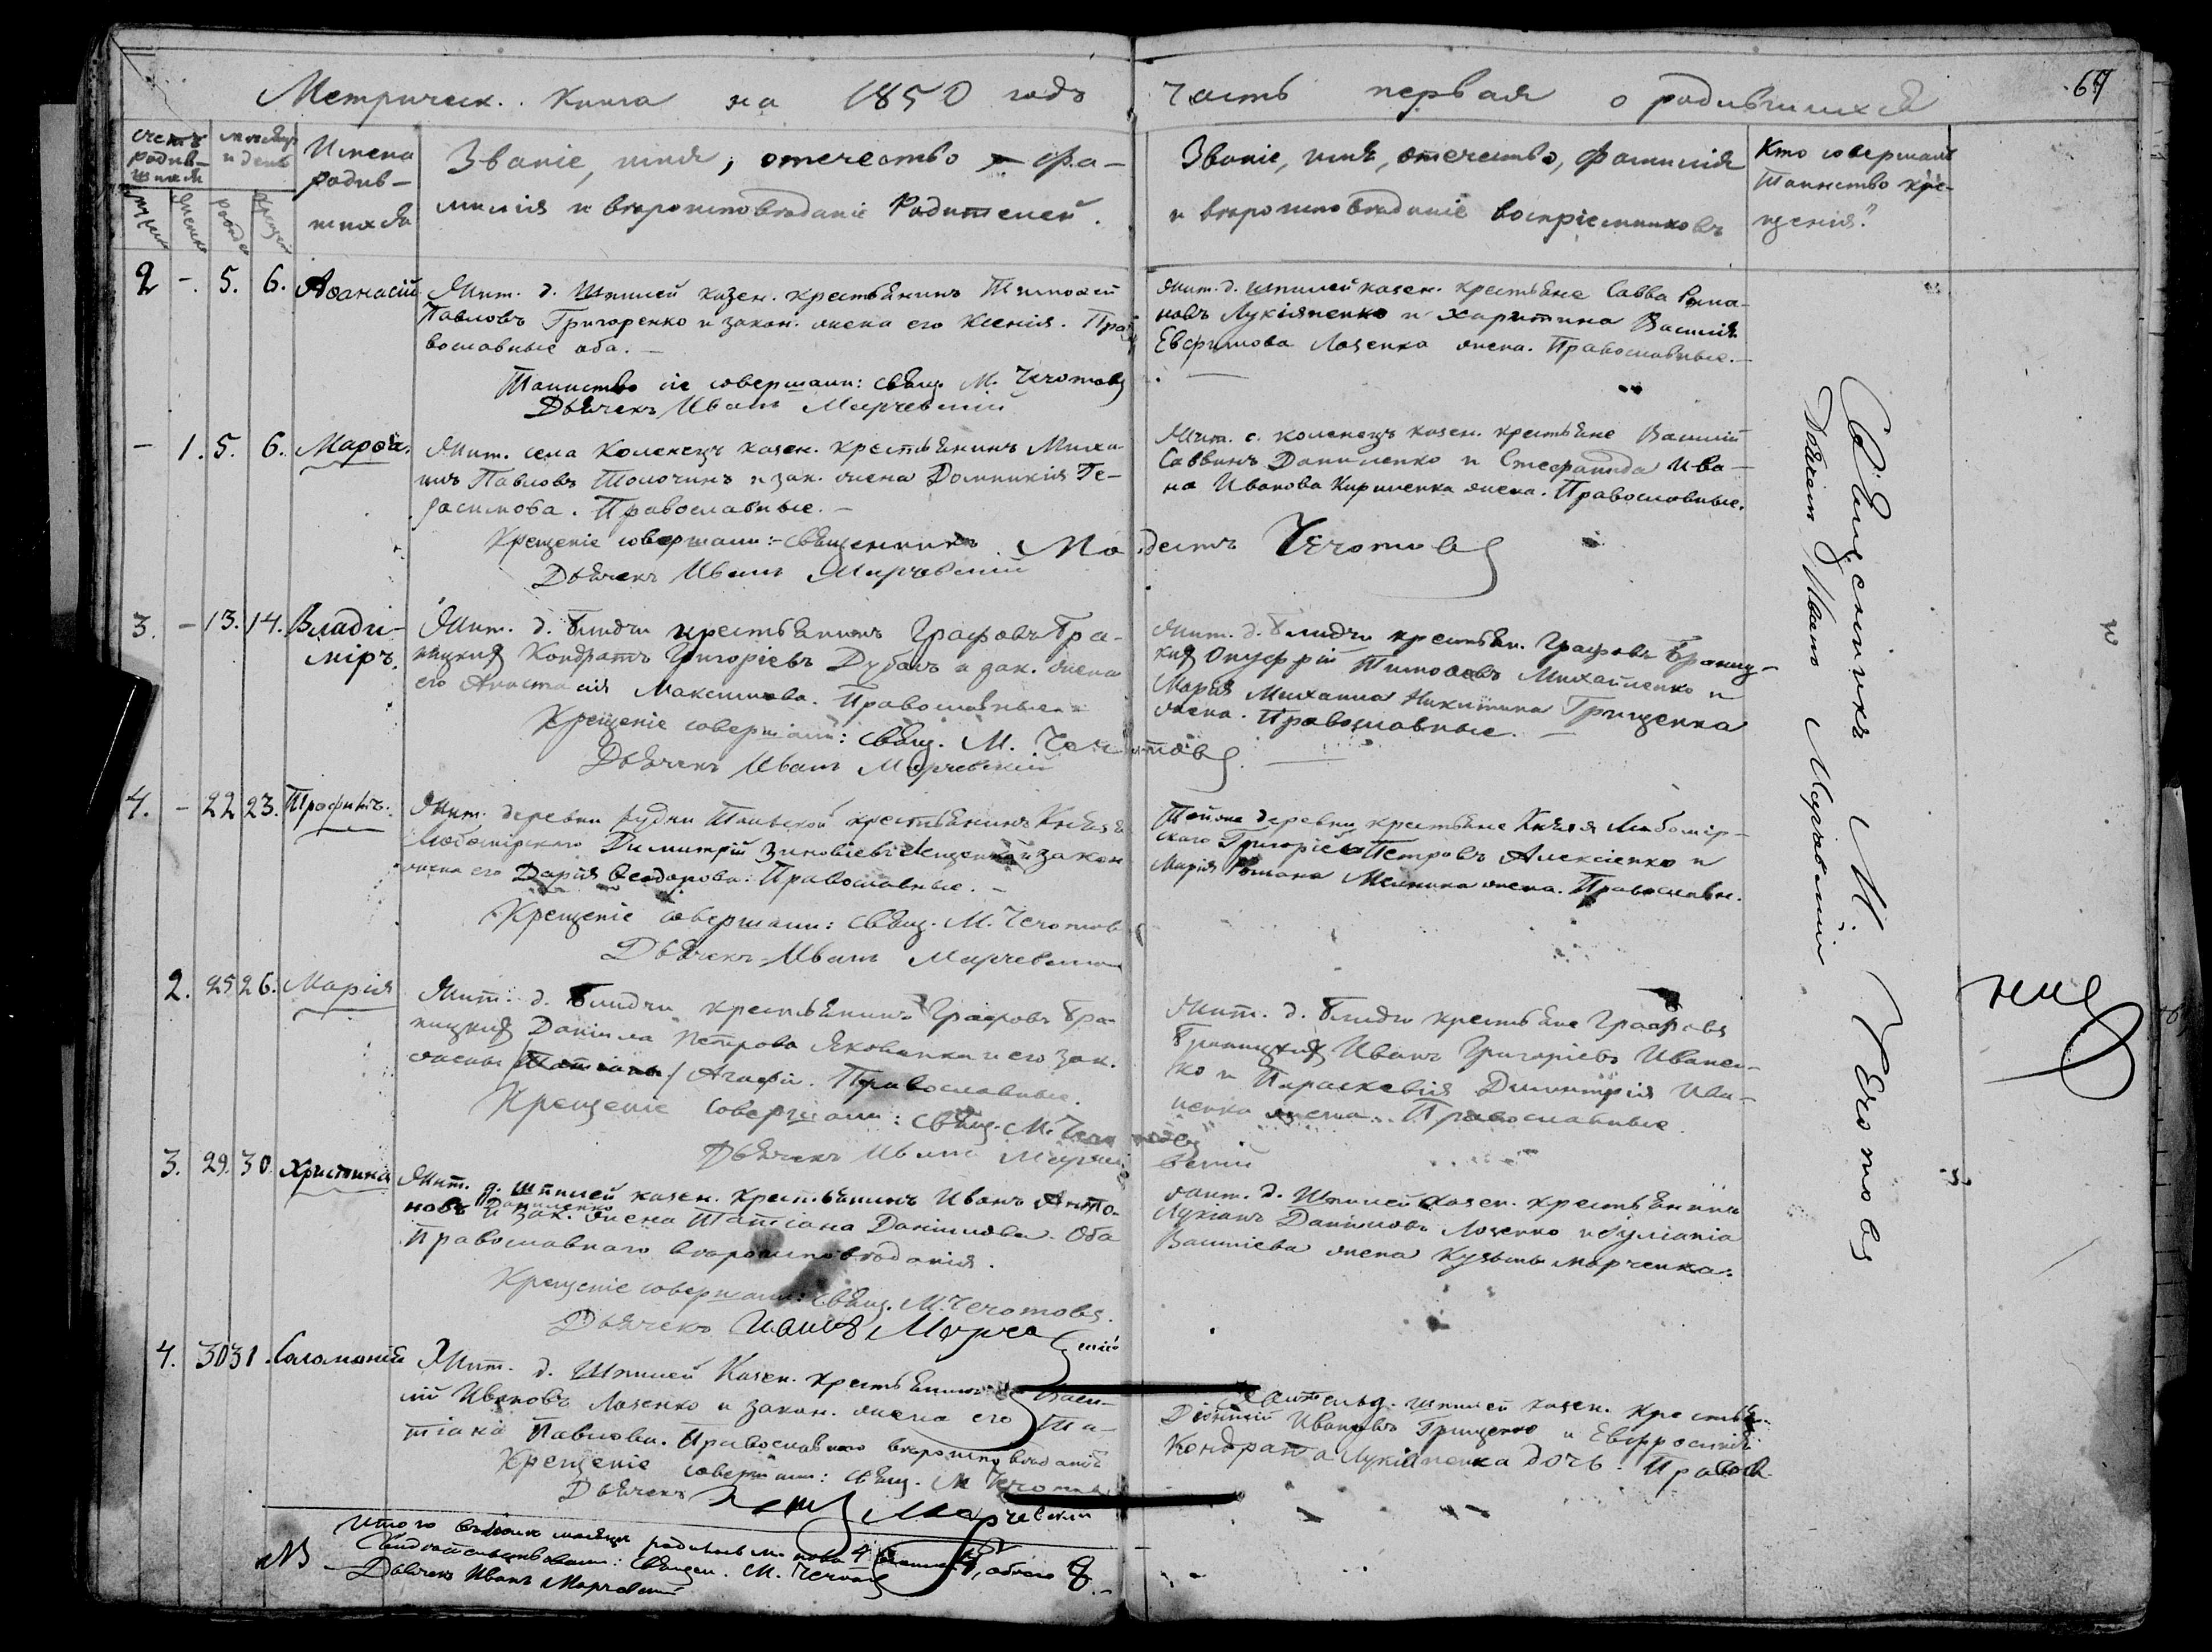 Метрическ. Книга на 1850 годъ часть первая о родившихся
67
счетъ родив-шихся
мѣсяцъ и день
Имена родив-шихся
Званіе, имя, отечество и фа-
милія и вѣроисповѣданіе Родителей.
Званіе, имя, отечество, фамилія
и вѣроисповѣданіе воспріемниковъ
Кто совершалъ
таинство кре-
щенія?
2 - 5. 6. Аѳанасій
Жит. д. Шпилей казен. крестьянинъ Тимоѳей
Павловъ Григоренко и закон. жена его Ксенія. Пра
вославные оба.
Таинство сіе совершали: свящ. М. Чечотовъ
Дьячекъ Иванъ Марчевскій
Жит. д. Шпилей казен. крестьяне Савва Рома-
новъ Лукіяненко и Харитина Василія
Евфимова Лазенка жена. Православные.
- 1. 5. 6. Марѳа.
Жит. села Коленецъ казен. крестьянинъ Миха-
илъ Павловъ Толочинъ и зак. жена Домникія Ге-
расимова. Православные.
Крещеніе совершали: Священникъ Мо дестъ Чечотовъ
Дьячекъ Иванъ Марчевскій
Жит. с. Коленецъ казен. крестьяне Василій
Саввинъ Даниленко и Стефанида Ива-
на Иванова Кириленка жена. Православные.
3. - 13. 14. Влади-
міръ.
Жит. д. Блидчи крестьянинъ Графовъ Бра-
ницкихъ Кондратъ Григоріевъ Дубалъ и зак. жена
его Анастасія Максимова. Православные.
Крещеніе совершали: свящ. М. Чечотовъ.
Дьячекъ Иванъ Марчевскій
Жит. д. Блидчи крестьян. Графовъ Браниц-
кихъ Онуфрій Тимоѳеевъ Михайленко и
Марія Михаила Никитина Грищенка
жена. Православные.
4. - 22 23. Трофимъ.
Жит. деревни Рудни крестьянинъ Князя
Любомірскаго Димитрій Зиновіевъ и закон
жена его Дарія Ѳеодорова. Православные.
Крещеніе совершали: свящ. М. Чечотовъ
Дьячекъ Иванъ Марчевскій
Той же деревни крестьяне Князя Любомір-
скаго Григорій Петровъ Алексіенко и
Марія Романа Мельника жена. Православн.
2. 25 26. Марія
Жит. д. Блидчи крестьянинъ Графовъ Бра-
ницкихъ Даніила Петрова Яковенка и его зак.
жены Агафіи. Православные.
Крещеніе совершали: свящ. М. Чечотовъ
Дьячекъ Иванъ Марчевскій
Жит. д. Блидчи крестьяне Графовъ
Браницкихъ Иванъ Григоріевъ Иванен-
ко и Параскевія Димитрія Ива-
ненка жена. Православные.
3. 29. 30. Христина
Жит. д. Шпилей казен. крестьянинъ Иванъ Анто-
новъ Даниленко и зак. жена Татіана Даніилова. Оба
Православнаго вѣроисповѣданія.
Крещеніе совершали: свящ. М. Чечотовъ.
Дьячекъ Иванъ Марчевскій
Жит. д. Шпилей казен. крестьянинъ
Лукіанъ Даніиловъ Лазенко и Іуліанія
Василіева жена Кузьмы Марченка.
4. 30 31. Саломонія
Жит. д. Шпилей Казен. крестьянинъ Васи-
лій Ивановъ Лазенко и закон. жена его Та-
тіана Павлова. Православнаго вѣроисповѣданія
Крещеніе совершали: свящ. М. Чечотовъ
Дьячекъ Иванъ Марчевскій
Жительд. Шпилей казен. крестьян.
Діонисій Ивановъ Грищенко и Евфросинія
Кондрата Лукіяненка дочь. Правосл.
Итого въ мѣсяцѣ родилось м. пола 4 женска 4, обоего 8.
Свидѣтельствовали: Священ. М. Чечотовъ
Дьячекъ Иванъ Марчевскій
Священникъ М. Чечотовъ
Дьячекъ Иванъ Марчевскій